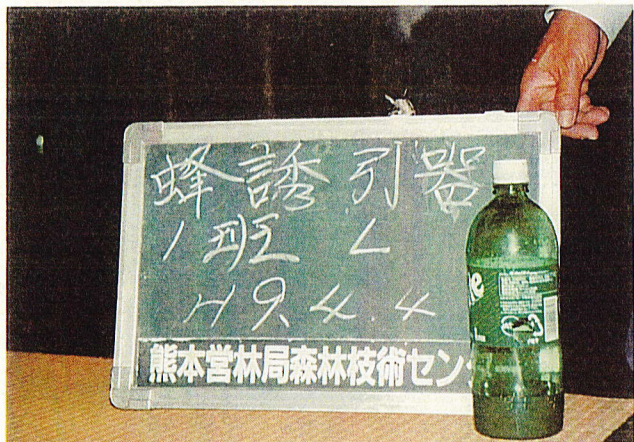 蜂誘引器
1班 L
H9.4.4
熊本営林局森林技術セン